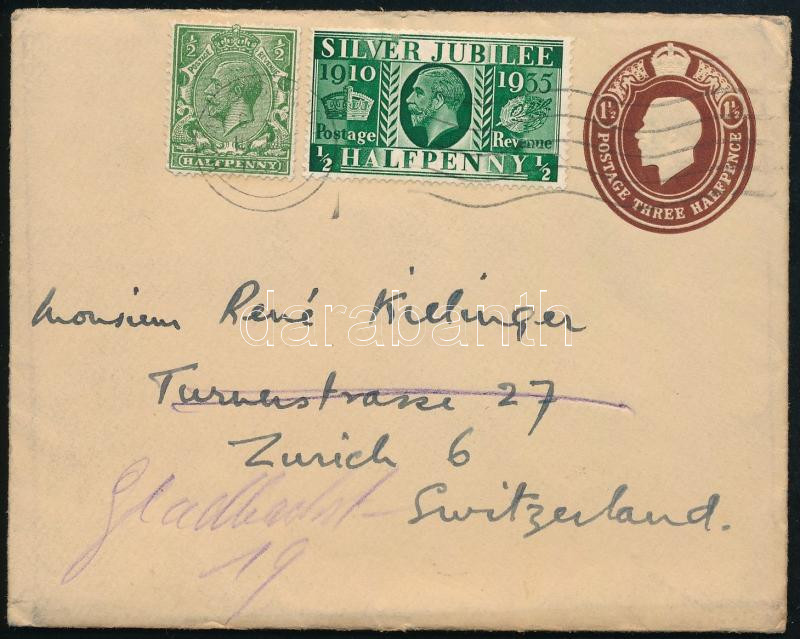 ½ POSTAGE REVENUE ½
HALFPENNY
SILVER JUBILEE
1910 1935
Postage Revenue
½ HALFPENNY ½
1½ 1½
POSTAGE THREE HALFPENCE
Monsieur René Killinger
Turnerstrasse 27
Zurich 6
Switzerland.
Gladbachst
19
darabanth